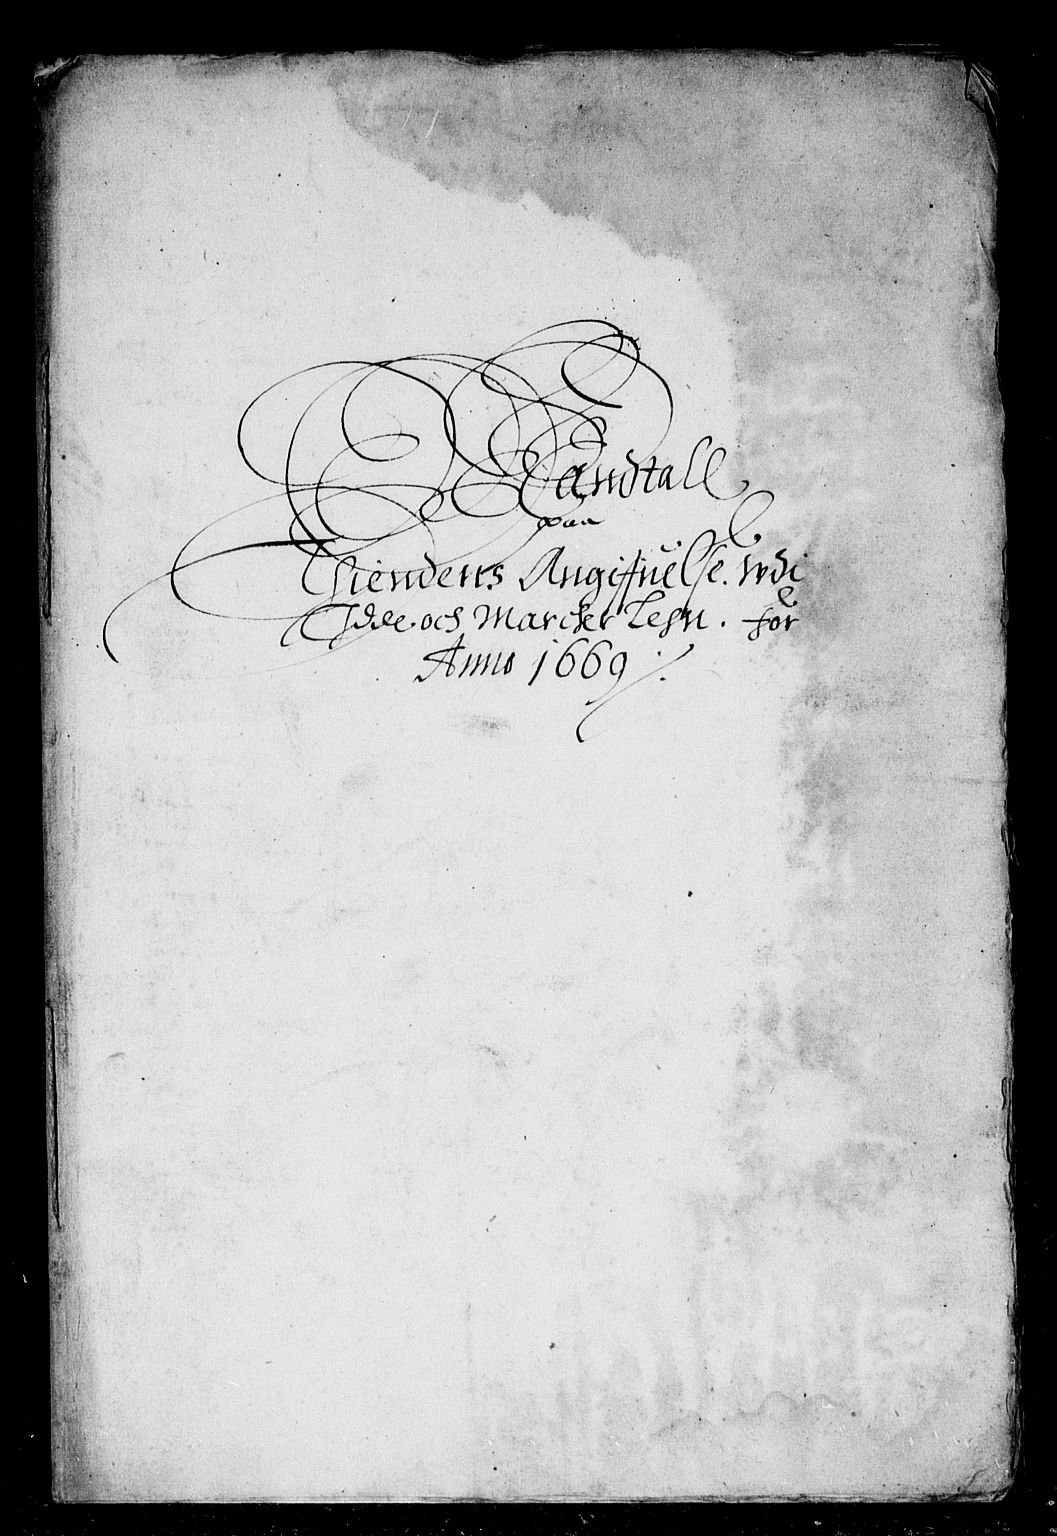 Mandtall
paa
Thiendens Angifuelse. wdi
Idde och Marcker Lehn. for
Anno 1669 :/